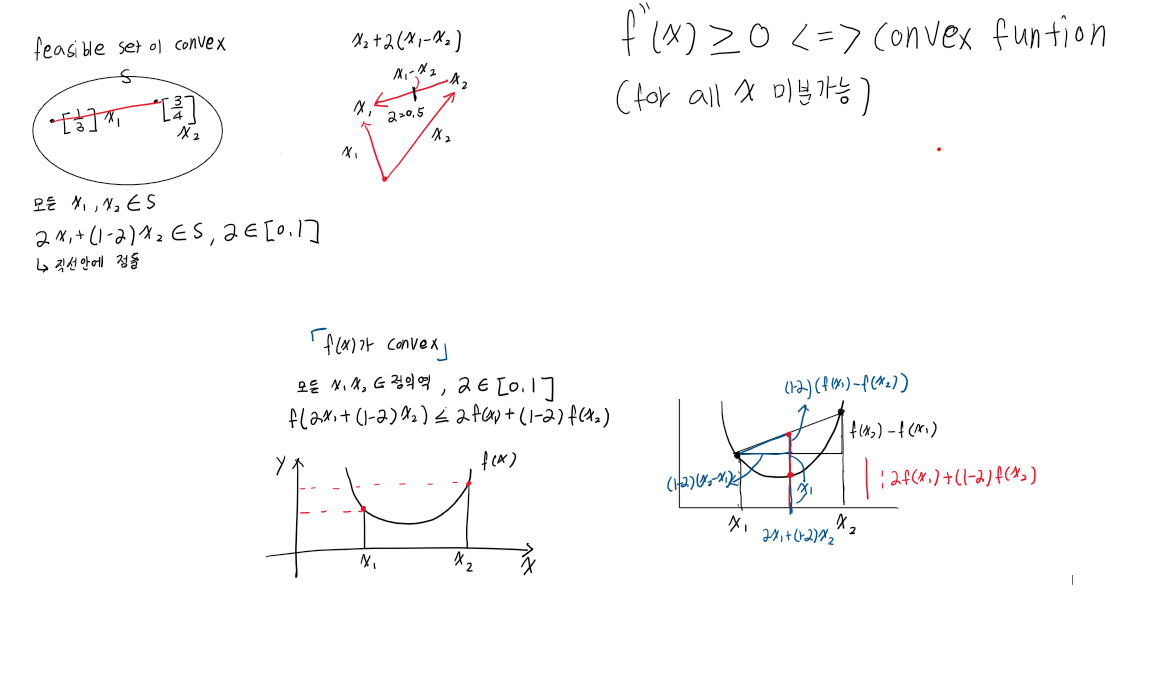 feasible set이 convex
S
[1 3] x₁
[3 4]
x₂
모든 x₁, x₂ ∈ S
2x₁+(1-2)x₂ ∈ S, 2∈[0,1]
↳ 직선안에 점들
x₂+2(x₁-x₂)
x₁-x₂
x₂
x₁
2=0.5
x₁
x₂
f''(x) ≥ 0 <=> convex funtion
(for all x 미분가능)
「f(x)가 convex」
모든 x₁ x₂ ∈ 정의역, 2∈[0,1]
f(2x₁+(1-2)x₂) ≤ 2f(x₁)+(1-2)f(x₂)
y
f(x)
x₁
x₂
x
(1-2)(f(x₁)-f(x₂))
f(x₂)-f(x₁)
(1-2)(x₂-x₁)
x₁
| : 2f(x₁)+(1-2)f(x₂)
x₁
x₂
2x₁+(1-2)x₂